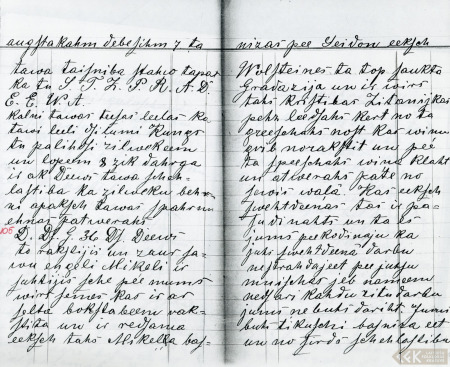 augstakahm debesihm 7 ta
tawa taisniba stahw tapat
ka tu S. T. Z. P. R. A. D.
E. E. W. A.
Kalni tawas tusas leelas ka
tawi leeli dsilumi Kungs
tu palihdsi zilwekeem
un lopeem 8 zik dahrga
ir ak Deews tawa schehl
lastiba ka zilweku behr
ni apaksch tawas spahrnu
ehnas patwerahs
105
D. Ds. G. 36 Ds. Deews
to un zaur sa
wu engeli Mikeli ir
suhtijis sche pee mums
wirs semes kas ir ar
selta bokstabeem rak
stita un ir redsama
eeksch tahs Mikella bas
nizas pee eeksch
ta top saukta
Gradazija un ir wirs
tahs kristibas
pehz leedsahs kert no ta
greeschahs nost kas winu
grib norakstit un pee
ta speeschahs wina klaht
un atwerahs pate no
sewis walā. Kas eeksch
swehtdeenas tas ir pa
sudinahts un ta es
jums peekodinaju ka
juhs swehtdeena darbu
nestrahdajeet pee juhsu
muischahs jeb nameem
nedf ari kahdu zitu darbu
jums ne buhs dariht. Jums
buhs tikuschi basniza eet
un no sirds schehlastibu